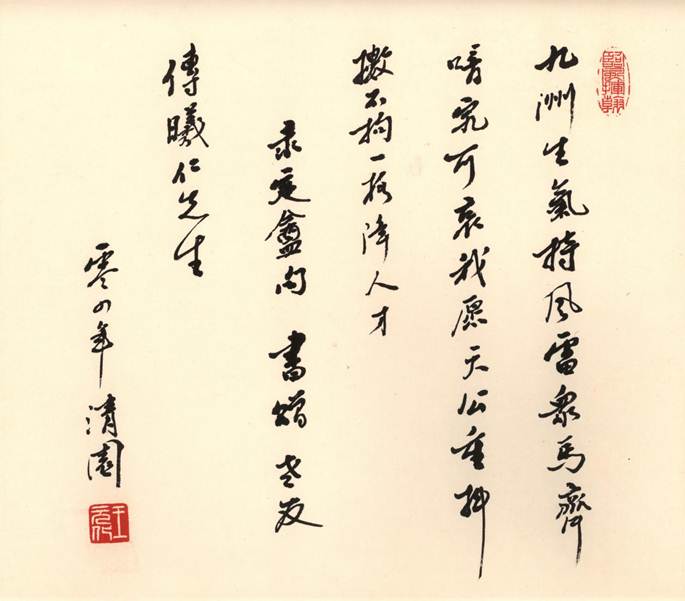 九洲生氣持風雷衆馬齊
喑究可哀我愿天公重抖
擻不拘一格降人才
录定盦句 書贈 老友
傅曦仁先生
零四年 清園
王元化